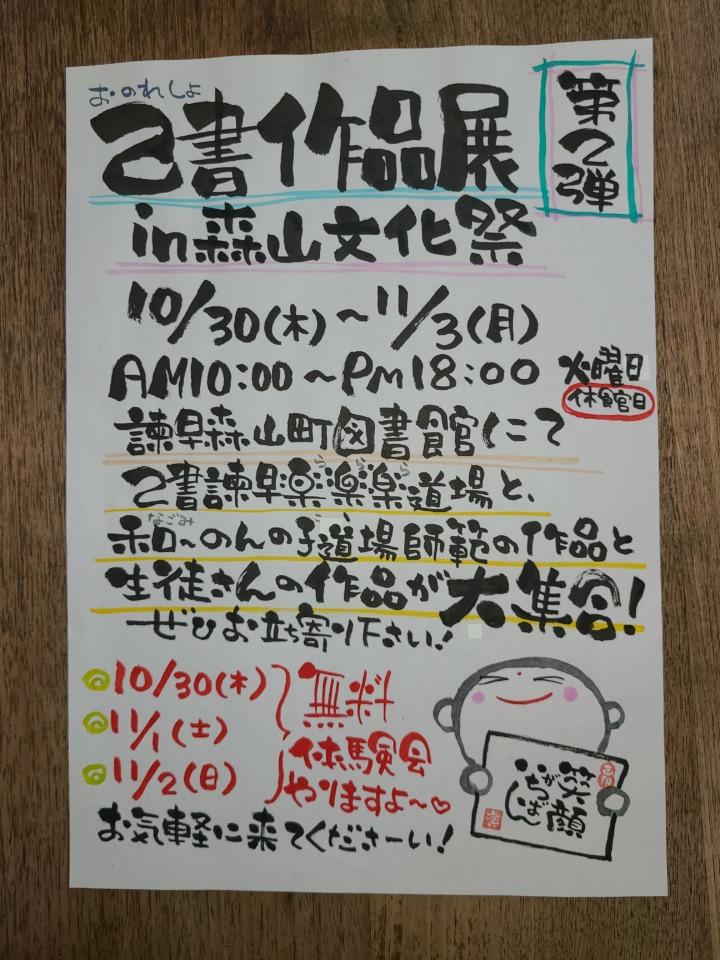 おのれしょ
己書作品展
第2弾
in森山文化祭
10/30(木)～11/3(月)
AM10:00～PM18:00
火曜日
休館日
諫早森山町図書館にて
己書諫早楽楽楽道場と、
なごみ
和～のんの子道場師範の作品と
生徒さんの作品が大集合!
ぜひお立ち寄り下さい!
10/30(木)
11/1(土)
11/2(日)
無料
体験会
やりますよ～♡
お気軽に来てくださーい!
笑顔
がいちばん